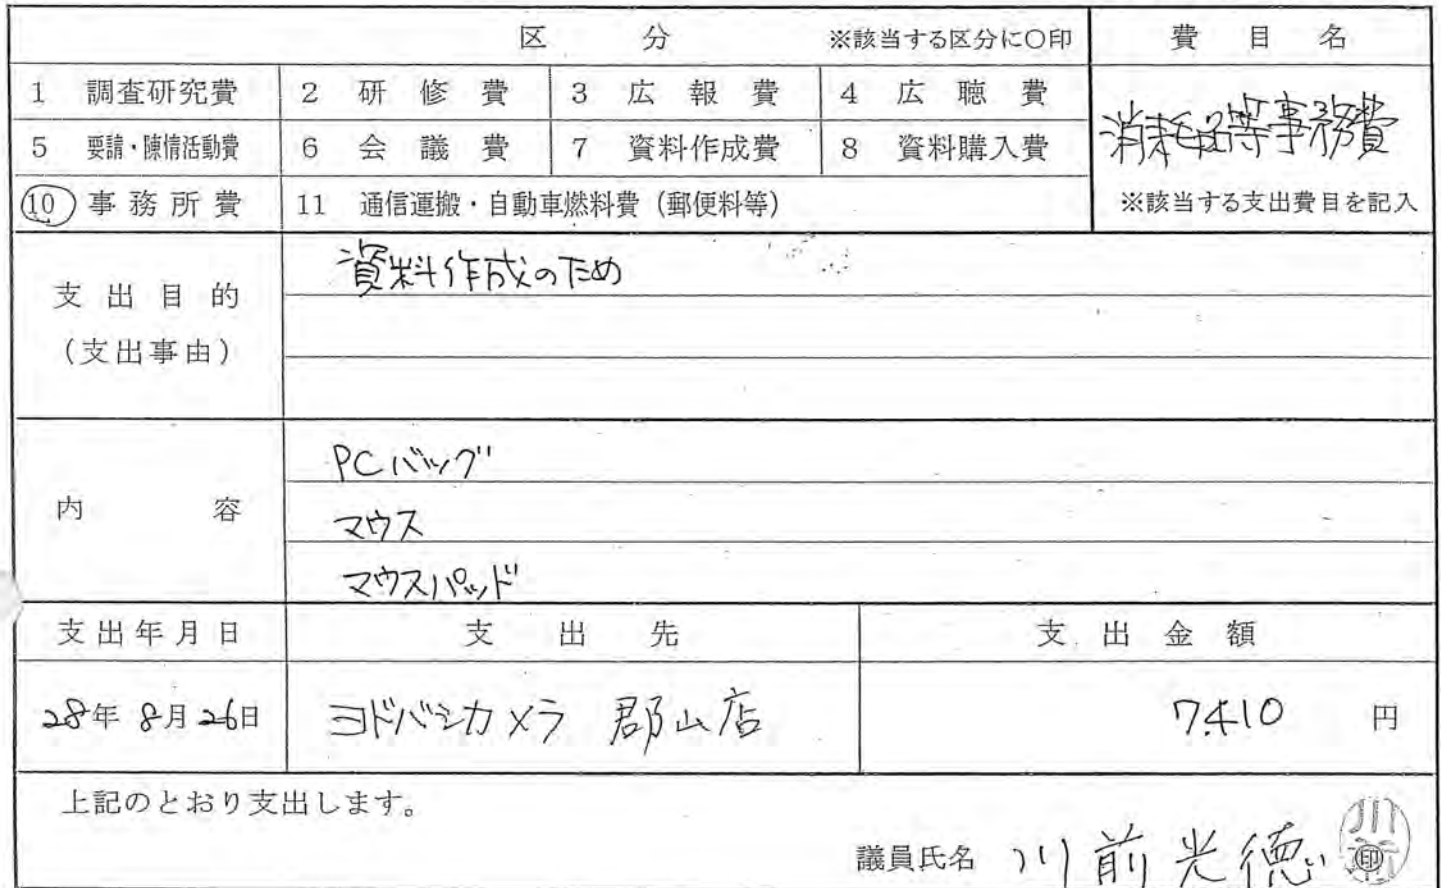 区 分 ※該当する区分に〇印 費目名
1 調査研究費 2 研修費 3 広報費 4 広聴費
消耗品等事務費
5 要請・陳情活動費 6 会議費 7 資料作成費 8 資料購入費
10 事務所費 11 通信運搬・自動車燃料費（郵便料等） ※該当する支出費目を記入
支出目的
（支出事由）
資料作成のため
内容
PCバッグ
マウス
マウスパッド
支出年月日 支出先 支出金額
28年 8月 26日 ヨドバシカメラ 郡山店 7,410 円
上記のとおり支出します。
議員氏名 川前光徳 印
川前